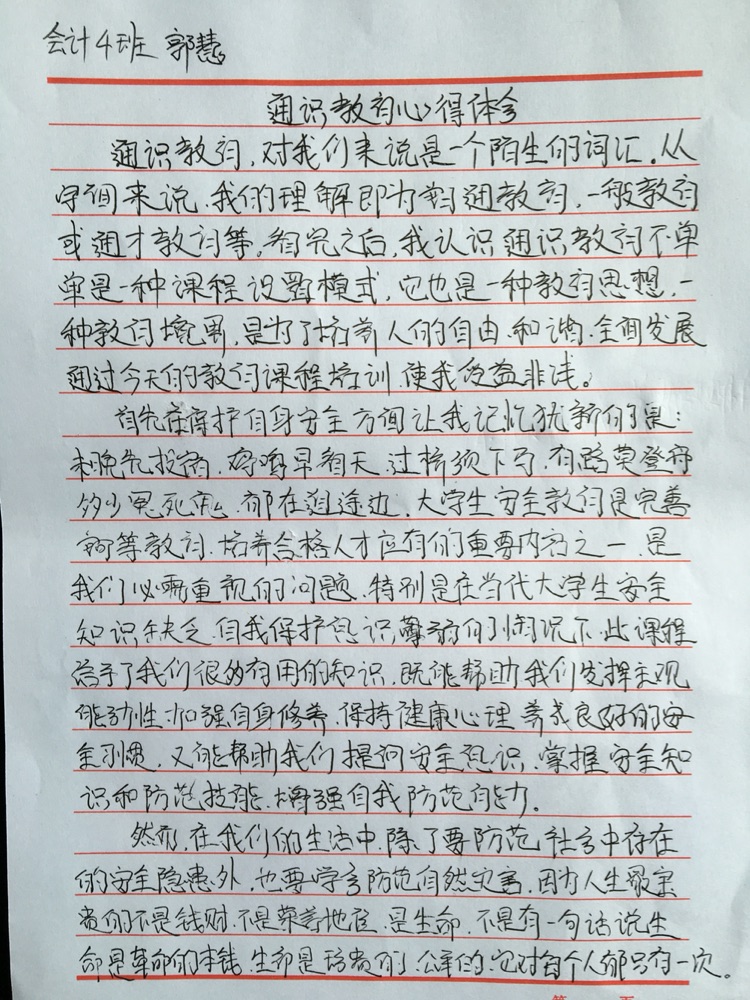 会计4班 郭慧
通识教育心得体会
通识教育,对我们来说是一个陌生的词汇。从
字面来说,我们的理解即为普通教育,一般教育
或通才教育等。看完之后,我认识通识教育不单
单是一种课程设置模式,它也是一种教育思想,一
种教育境界,是为了培养人的自由、和谐、全面发展
通过今天的教育课程培训,使我受益非浅。
首先在保护自身安全方面让我记忆犹新的是:
未晚先投宿,鸡鸣早看天,过桥须下马,有路莫登舟
多少冤死鬼,都在道途边。大学生安全教育是完善
高等教育、培养合格人才应有的重要内容之一,是
我们必需重视的问题。特别是在当代大学生安全
知识缺乏,自我保护意识薄弱的情况下,此课程
给予了我们很多有用的知识,既能帮助我们发挥主观
能动性,加强自身修养,保持健康心理,养成良好的安
全习惯,又能帮助我们提高安全意识,掌握安全知
识和防范技能,增强自我防范能力。
然而,在我们的生活中,除了要防范社会中存在
的安全隐患外,也要学会防范自然灾害,因为人生最宝
贵的不是钱财,不是荣誉地位,是生命,不是有一句话说生
命是革命的本钱,生命是珍贵的,公平的,它对每个人都只有一次。